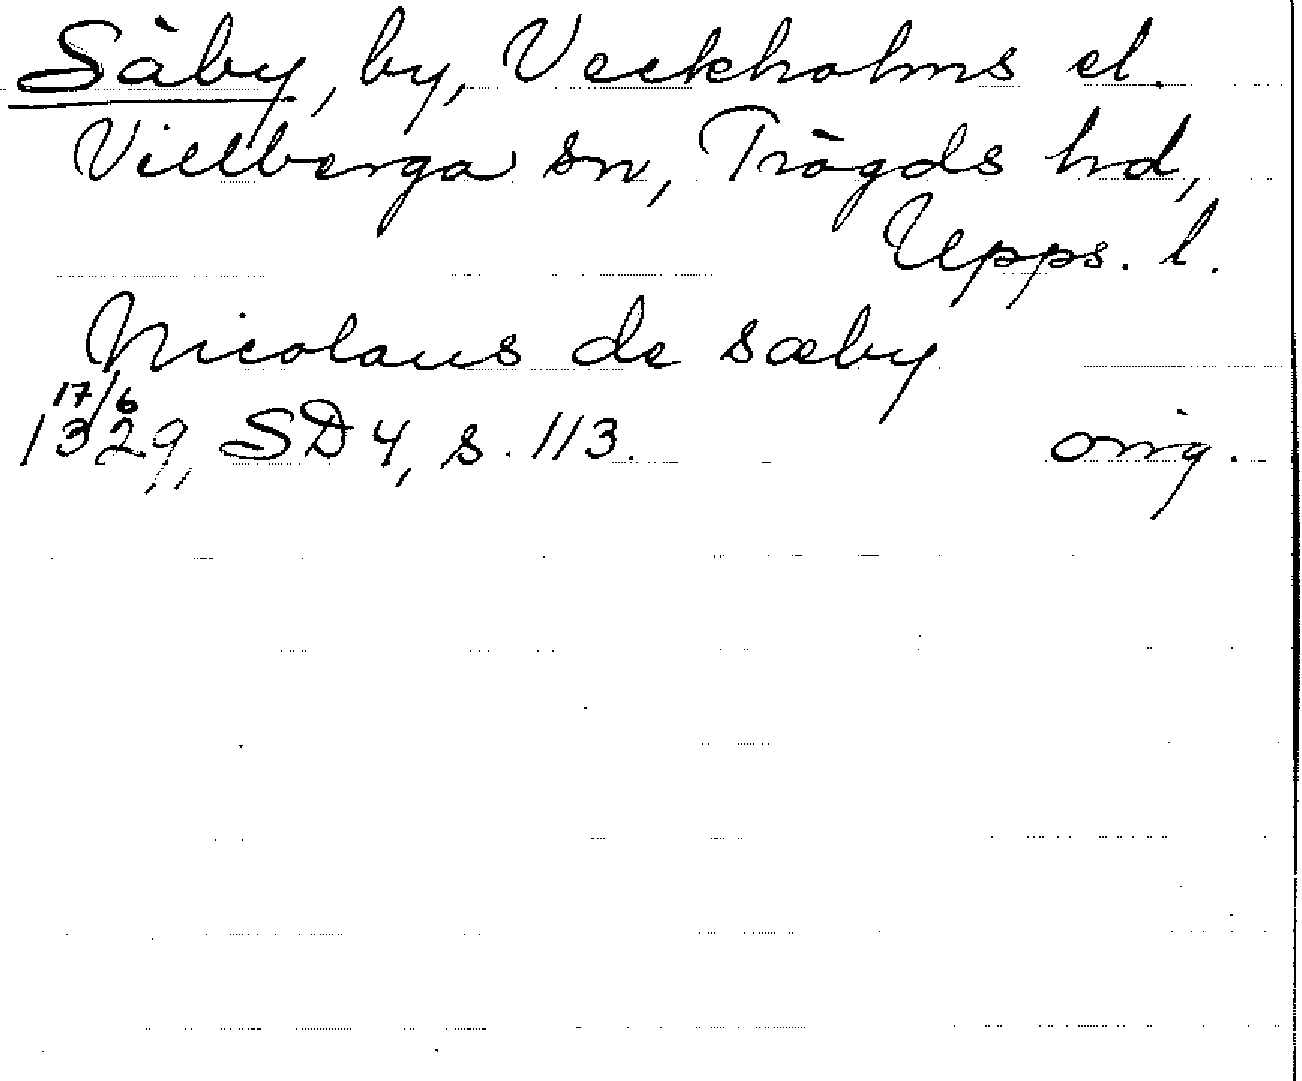 Säby, by, Veckholms el.
Villberga sn, Trögds hd,
Upps. l.
Nicolaus de sæby
17/6
1329, SD 4, s. 113. orig.